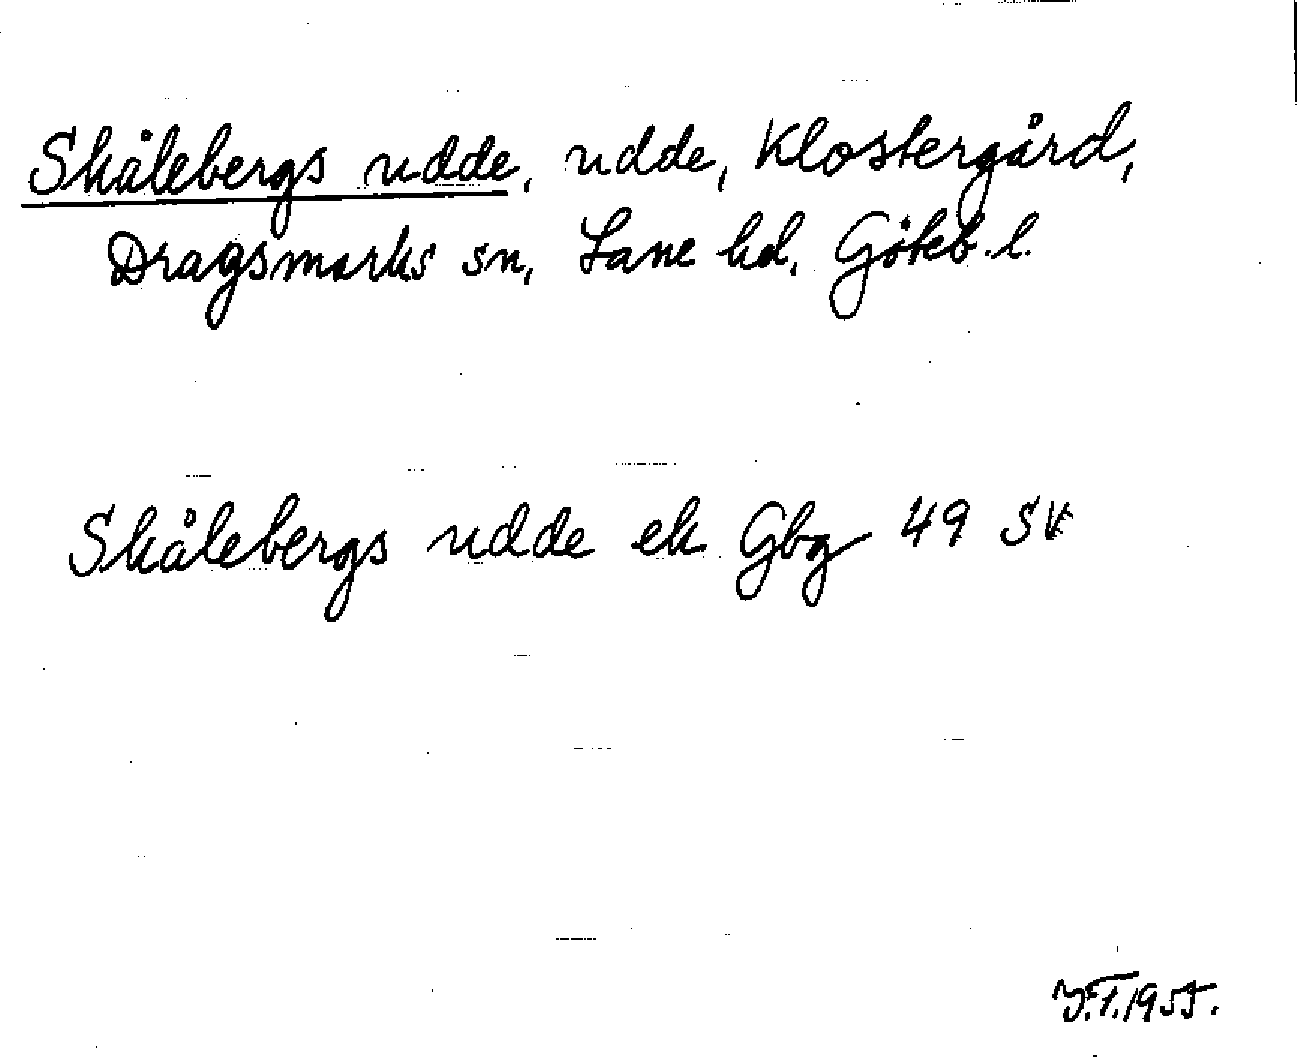 Skålebergs udde, udde, Klostergård,
Dragsmarks sn, Lane hd, Göteb. l.
Skålebergs udde ek Gbg 49 SV
1955.